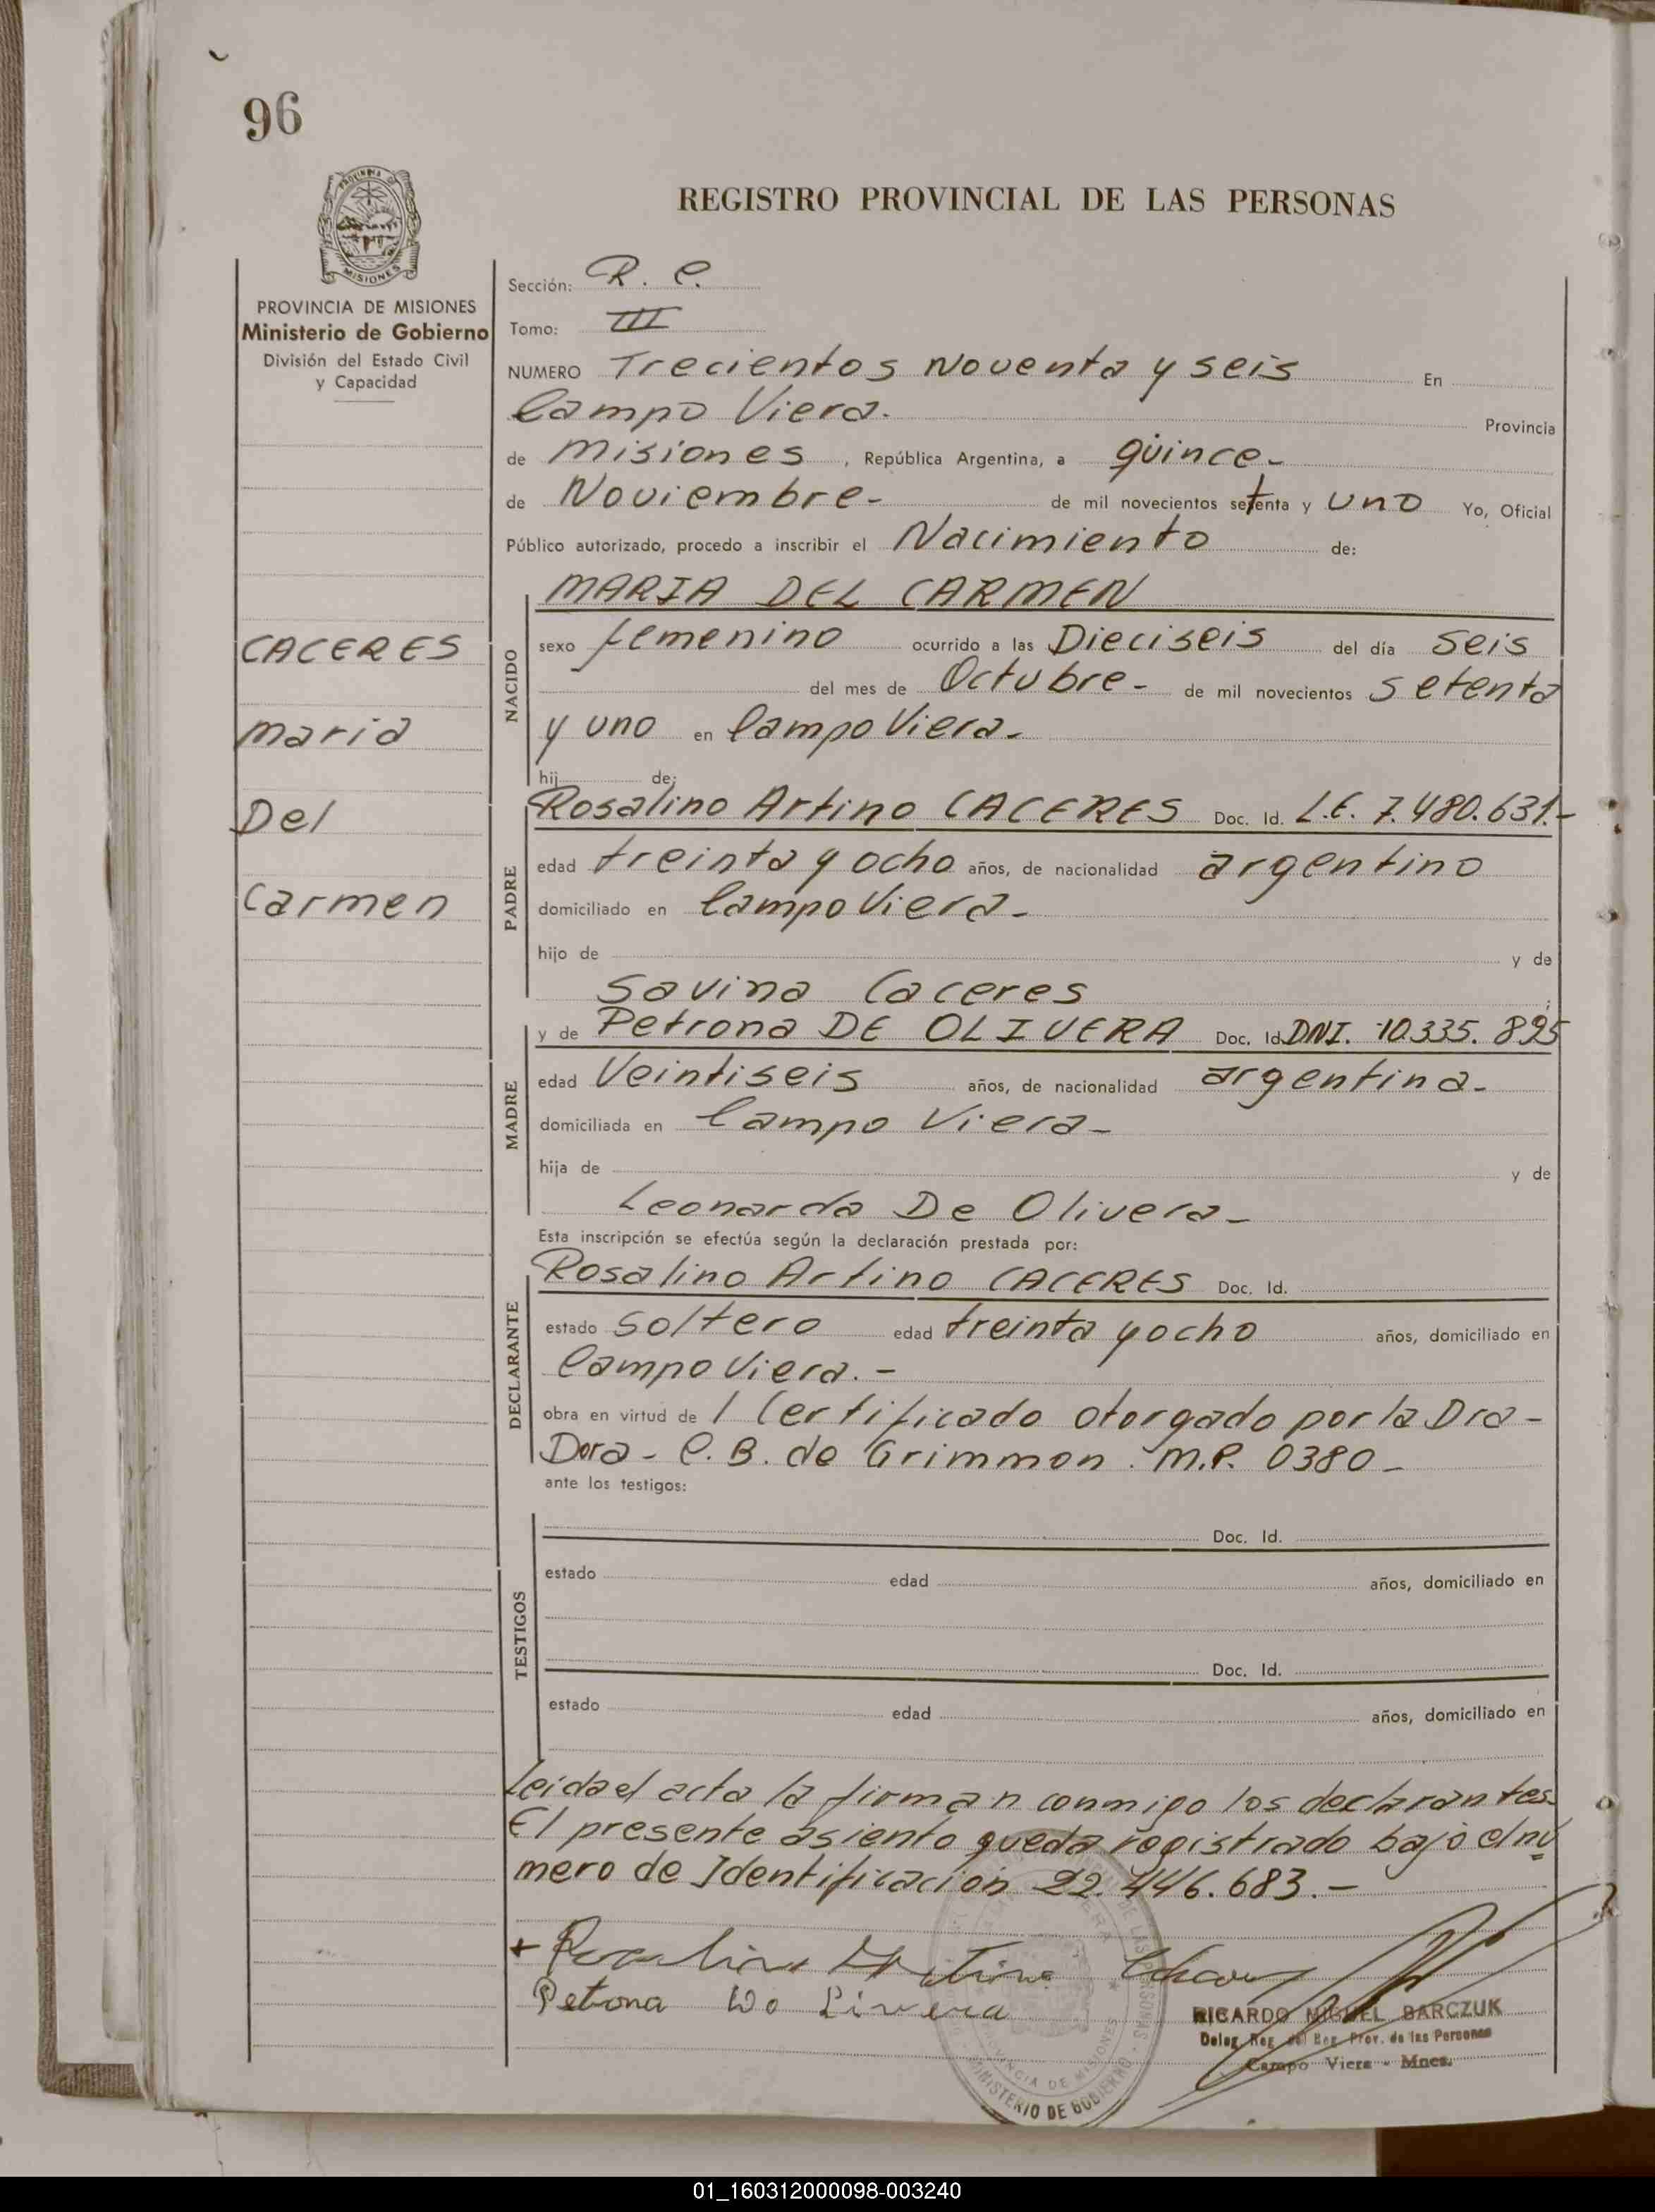 96
REGISTRO PROVINCIAL DE LAS PERSONAS
PROVINCIA DE MISIONES
Ministerio de Gobierno
División del Estado Civil
y Capacidad
CACERES
Maria
Del
Carmen
Sección: R. C.
Tomo: III
NUMERO Trecientos Noventa y seis En
Campo Viera.- Provincia
de Misiones, República Argentina, a quince-
de Noviembre- de mil novecientos setenta y uno Yo, Oficial
Público autorizado, procedo a inscribir el Nacimiento de:
NACIDO
MARIA DEL CARMEN
sexo femenino ocurrido a las Dieciseis del día Seis
del mes de Octubre- de mil novecientos setenta
y uno en Campo Viera-
hij de:
PADRE
Rosalino Artino CACERES Doc. Id. L.E. 7.480.631.-
edad treinta y ocho años, de nacionalidad argentino
domiciliado en Campo Viera-
hijo de y de
Savina Caceres ;
MADRE
y de Petrona DE OLIVERA Doc. Id DNI. 10.335.895
edad Veintiseis años, de nacionalidad argentina-
domiciliada en Campo Viera-
hija de y de
Leonarda De Olivera-
Esta inscripción se efectúa según la declaración prestada por:
DECLARANTE
Rosalino Artino CACERES Doc. Id.
estado Soltero edad treinta y ocho años, domiciliado en
Campo Viera.-
obra en virtud de 1 Certificado otorgado por la Dra-
Dora- C. B. de Grimmon. M.P. 0380-
ante los testigos:
TESTIGOS
Doc. Id.
estado edad años, domiciliado en
Doc. Id.
estado edad años, domiciliado en
Leida el acta la firman conmigo los declarantes.
El presente asiento queda registrado bajo el nú
mero de Identificación 22.446.683.-
+ Rosalino Artino
Petrona Do Livera
RICARDO MIGUEL BARCZUK
Deleg. Reg. del Reg. Prov. de las Personas
Campo Viera - Mnes.
PROVINCIA DE MISIONES
MINISTERIO DE GOBIERNO
01_160312000098-003240